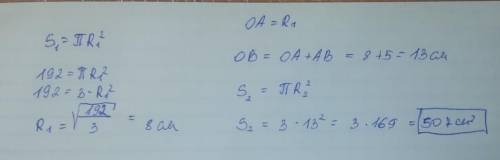 S₁ = πR₁²
192 = πR₁²
192 = 3·R₁²
R₁ = √192/3 = 8 см
OA = R₁
OB = OA + AB = 8 + 5 = 13 см
S₂ = πR₂²
S₂ = 3 · 13² = 3 · 169 = 507 см²